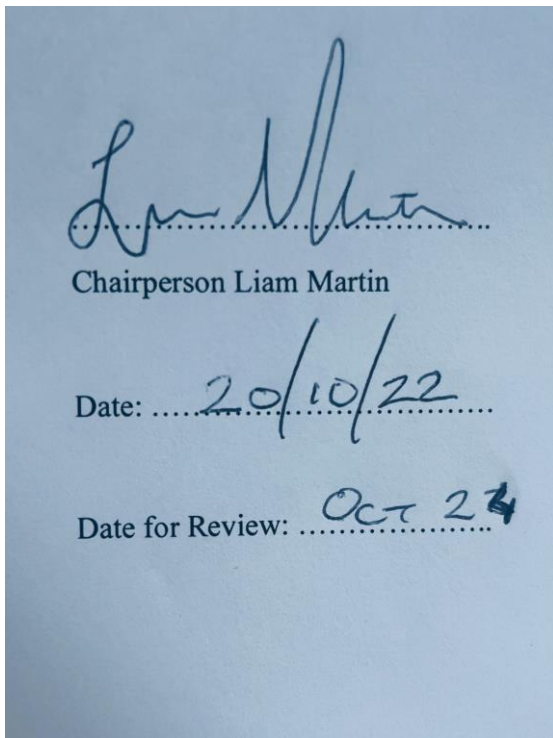 Liam Martin
Chairperson Liam Martin
Date: 20/10/22
Date for Review: Oct 24